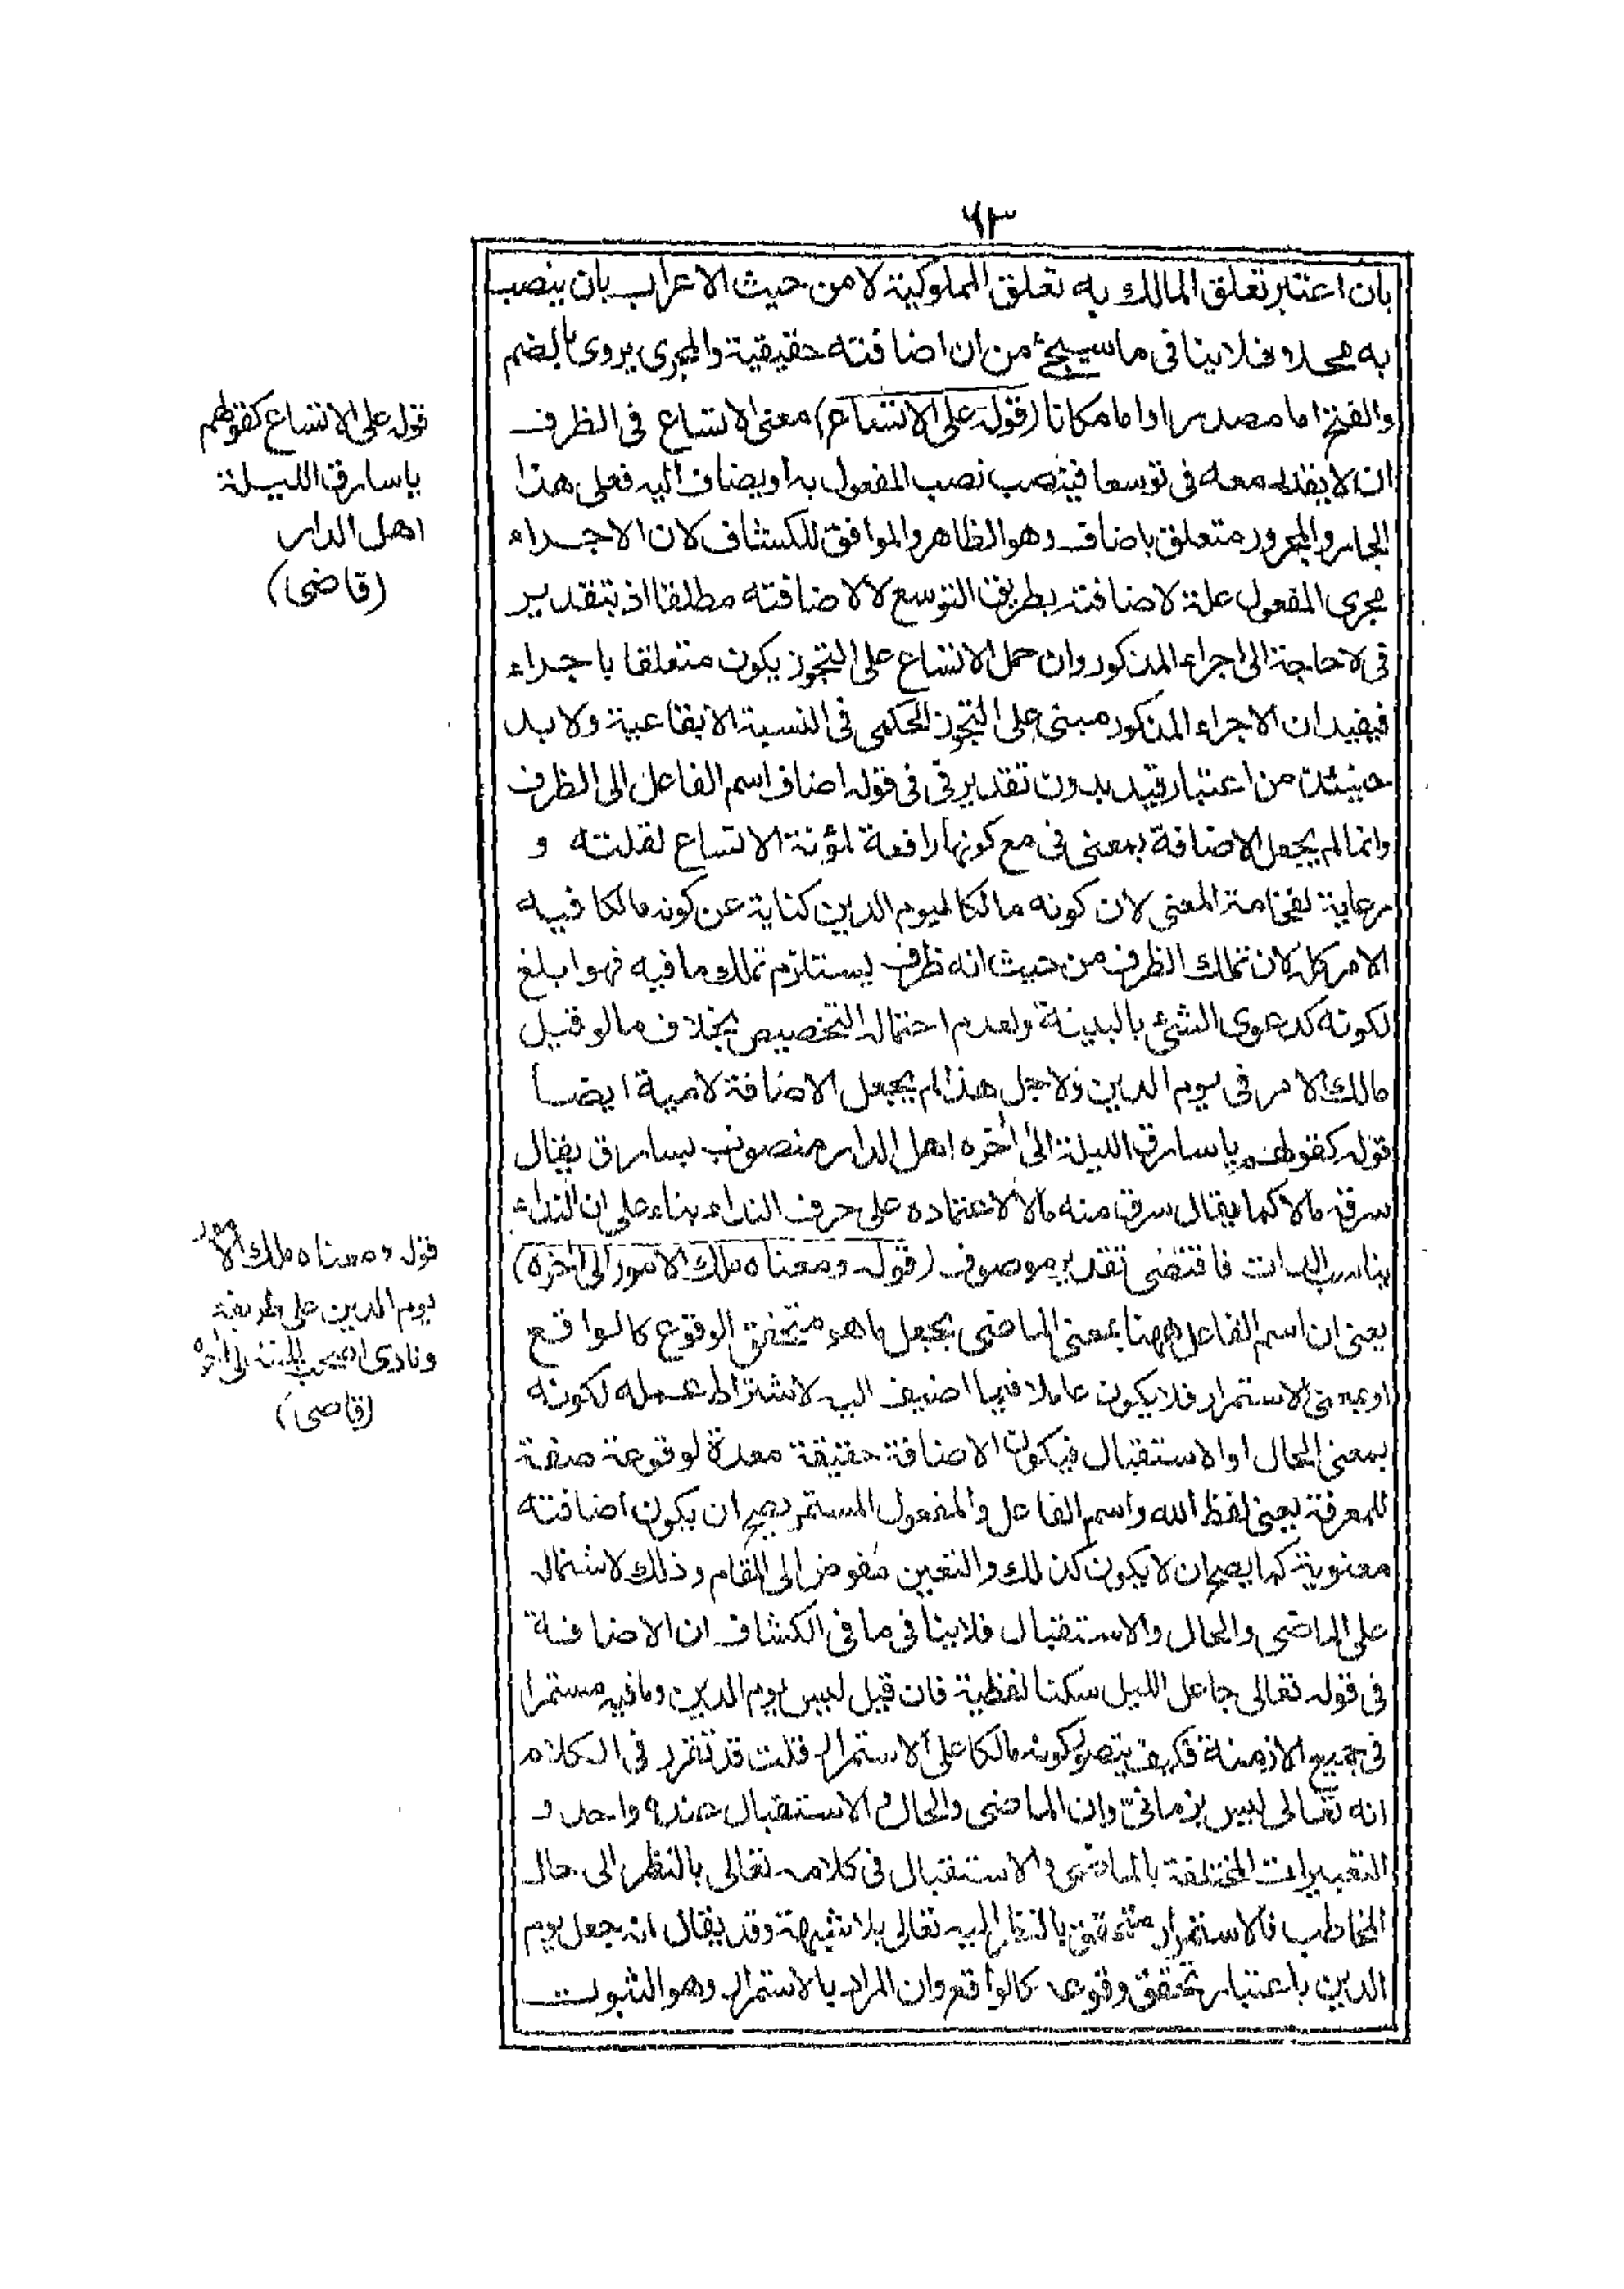 ٦٣
بان اعتبر تعلق المالك به تعلق المملوكية لا من حيث الاعراب بان ينصب
به محلا فلا ينافى ما سيجئ من ان اضافته حقيقية والمجرى يروى بالضم
والفتح اما مصدرا واما مكانا (قوله على الاتساع) معنى الاتساع فى الظرف
ان لا يقدر معه فى توسعا فينصب نصب المفعول به او يضاف اليه فعلى هذا
الجار والمجرور متعلق باضاف وهو الظاهر والموافق للكشاف لان الاجراء
مجرى المفعول علة لاضافته بطريق التوسع لا لاضافته مطلقا اذ بتقدير
فى لا حاجة الى اجراء المذكور وان حمل الاتساع على التجوز يكون متعلقا باجراء
فيفيد ان الاجراء المذكور مبنى على التجوز الحكمى فى النسبة الايقاعية ولا بد
حينئذ من اعتبار قيد بدون تقدير فى فى قوله اضاف اسم الفاعل الى الظرف
وانما لم يجعل الاضافة بمعنى فى مع كونها رافعة لمؤنة الاتساع لقلته و
رعاية لفخامة المعنى لان كونه مالكا ليوم الدين كناية عن كونه مالكا فيه
الامر كله لان تملك الظرف من حيث انه ظرف يستلزم تملك ما فيه فهو ابلغ
لكونه كدعوى الشئ بالبينة ولعدم احتماله التخصيص بخلاف ما لو قيل
مالك الامر فى يوم الدين ولاجل هذا لم يجعل الاضافة لامية ايضا
قوله كقولهم يا سارق الليلة الى اخره اهل الدار منصوب بسارق يقال
سرقه مالا كما يقال سرق منه مالا لاعتماده على حرف النداء بناء على ان النداء
يناسب الذات فاقتضى تقدير موصوف (قوله ومعناه ملك الامور الى اخره)
يعنى ان اسم الفاعل ههنا بمعنى الماضى بجعل ما هو متحقق الوقوع كالواقع
او بمعنى الاستمرار فلا يكون عاملا فيما اضيف اليه لاشتراط عمله لكونه
بمعنى الحال او الاستقبال فيكون الاضافة حقيقة معدة لوقوعه صفة
للمعرفة يعنى لفظ الله واسم الفاعل والمفعول المستمر يصح ان يكون اضافته
معنوية كما يصح ان لا يكون كذلك والتعيين مفوض الى المقام وذلك لاشتماله
على الماضى والحال والاستقبال فلا ينافى ما فى الكشاف ان الاضافة
فى قوله تعالى جاعل الليل سكنا لفظية فان قيل ليس يوم الدين وما فيه مستمرا
فى جميع الازمنة فكيف يتصور كونه مالكا على الاستمرار قلت قد تقرر فى الكلام
انه تعالى ليس بزمانى وان الماضى والحال والاستقبال عنده واحد و
التعبيرات المختلفة بالماضى والاستقبال فى كلامه تعالى بالنظر الى حال
المخاطب فالاستمرار متحقق بالنظر اليه تعالى بلا شبهة وقد يقال انه جعل يوم
الدين باعتبار تحقق وقوعه كالواقع وان المراد بالاستمرار وهو الثبوت
قوله على الاتساع كقولهم
يا سارق الليلة
اهل الدار
(قاضى)
قوله ومعناه ملك الامور
يوم الدين على طريقة
ونادى اصحب الجنة الى اخره
(قاضى)